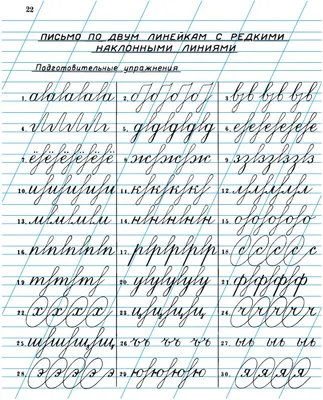 22
ПИСЬМО ПО ДВУМ ЛИНЕЙКАМ С РЕДКИМИ
НАКЛОННЫМИ ЛИНИЯМИ
Подготовительные упражнения
1. а а а а а 2. б б б б 3. в в в в
4. г г г г г 5. д д д д д 6. е е е е е
7. ё ё ё ё ё ё 8. ж ж ж ж 9. з з з з з
10. и и и и и 11. к к к к к 12. л л л л л
13. м м м м 14. н н н н н 15. о о о о о
16. п п п п п 17. р р р р р 18. с с с с с
19. т т т 20. у у у у у 21. ф ф ф ф
22. х х х х 23. ц ц ц ц 24. ч ч ч ч ч
25. ш щ щ щ щ 26. ъ ъ ъ ъ 27. ы ь ы ь
28. э э э э 29. ю ю ю ю 30. я я я я